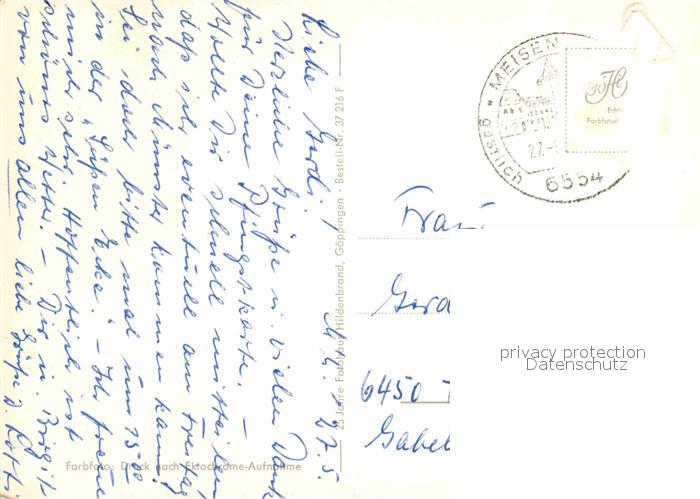 Liebe Gerdi!
27.5.
Herzliche Grüße u. vielen Dank
für Deine Pfingstkarte. –
Wollte Dir schnell mitteilen
daß ich eventuell am Freitag
nach Münster kommen kann.
Sei daher bitte mal um 15 00
in der "Süßen Ecke". – Ich freue
mich sehr. Hoffentlich ist
schönes Wetter. – Dir u. Birgit
von uns allen liebe Grüße
Farbfoto: Druck nach Ektachrome-Aufnahme
25 Jahre Fotohaus Hildenbrand, Göppingen · Bestell-Nr. 37 216 F
MEISEN
27.
6554
Echte
Farbfotod
Frau
Gerd
6450
Gabel
privacy protection
Datenschutz